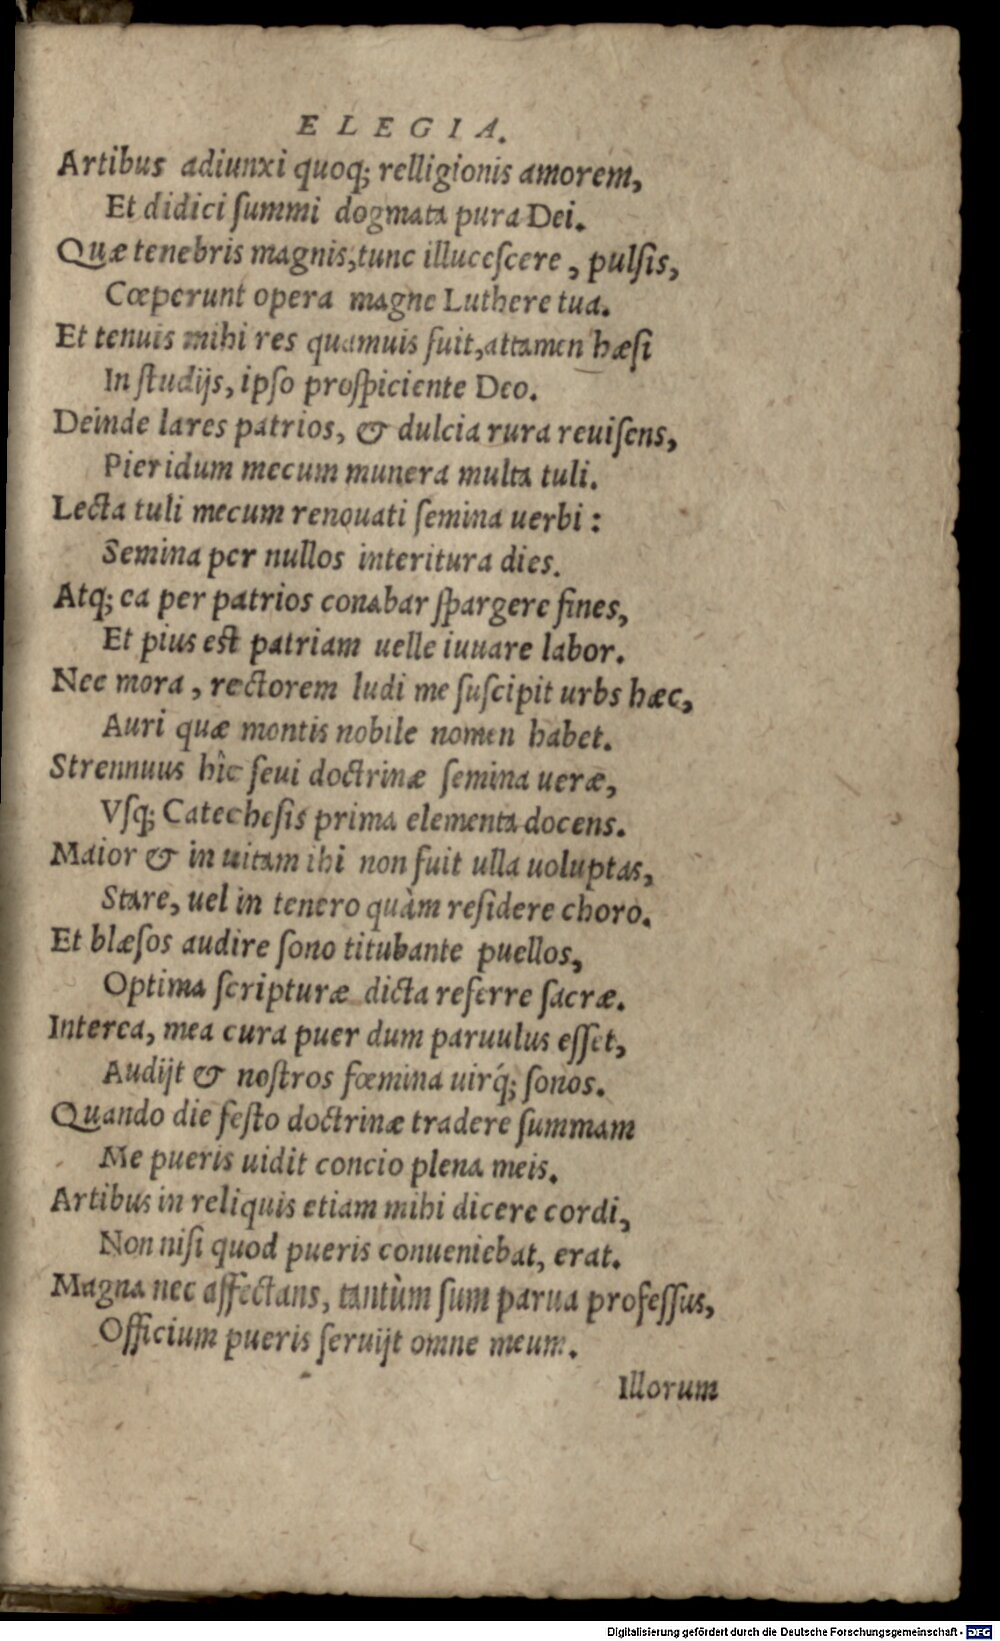 ELEGIA.
Artibus adiunxi quoq; relligionis amorem,
Et didici ſummi dogmata pura Dei.
Quæ tenebris magnis, tunc illuceſcere, pulſis,
Cœperunt opera magne Luthere tua.
Et tenuis mihi res quamuis fuit, attamen hæſi
In ſtudijs, ipſo proſpiciente Deo.
Deinde lares patrios, & dulcia rura reuiſens,
Pieridum mecum munera multa tuli.
Lecta tuli mecum renouati ſemina uerbi:
Semina per nullos interitura dies.
Atq; ea per patrios conabar ſpargere fines,
Et pius est patriam uelle iuuare labor.
Nec mora, rectorem ludi me ſuſcipit urbs hæc,
Auri quæ montis nobile nomen habet.
Strennuus hîc ſeui doctrinæ ſemina ueræ,
Vſq; Catecheſis prima elementa docens.
Maior & in uitam ibi non fuit ulla uoluptas,
Stare, uel in tenero quàm reſidere choro.
Et blæſos audire ſono titubante puellos,
Optima ſcripturæ dicta referre ſacræ.
Interea, mea cura puer dum paruulus eſſet,
Audijt & noſtros fœmina uirq́; ſonos.
Quando die feſto doctrinæ tradere ſummam
Me pueris uidit concio plena meis.
Artibus in reliquis etiam mihi dicere cordi,
Non niſi quod pueris conueniebat, erat.
Magna nec affectans, tantùm ſum parua profeſſus,
Officium pueris ſeruijt omne meum.
Illorum
Digitalisierung gefördert durch die Deutsche Forschungsgemeinschaft - DFG